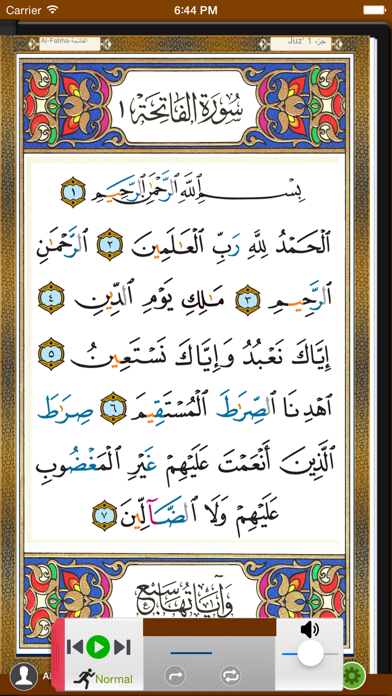 Carrier 6:44 PM
Al-Fatiha-الفاتحة Juz' 1 جزء
سُورَةُ الفَاتِحَةِ ١
بِسْمِ اللَّهِ الرَّحْمَٰنِ الرَّحِيمِ ١
الْحَمْدُ لِلَّهِ رَبِّ الْعَالَمِينَ ٢ الرَّحْمَٰنِ
الرَّحِيمِ ٣ مَالِكِ يَوْمِ الدِّينِ ٤
إِيَّاكَ نَعْبُدُ وَإِيَّاكَ نَسْتَعِينُ ٥
اهْدِنَا الصِّرَاطَ الْمُسْتَقِيمَ ٦ صِرَاطَ
الَّذِينَ أَنْعَمْتَ عَلَيْهِمْ غَيْرِ الْمَغْضُوبِ
عَلَيْهِمْ وَلَا الضَّالِّينَ ٧
وَآيَاتُهَا سَبْعٌ
Normal